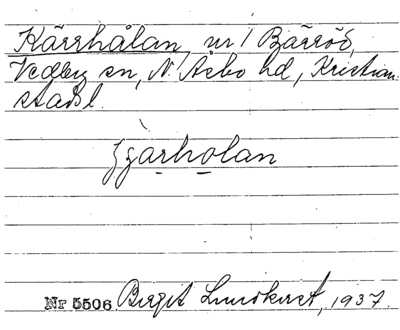 Kärrhålan, nr 1 Bärröd,
Vedby sn, N. Åsbo hd, Kristian-
stads l.
çjarholan
Nr 5506 Birgit Lundkvist, 1937.